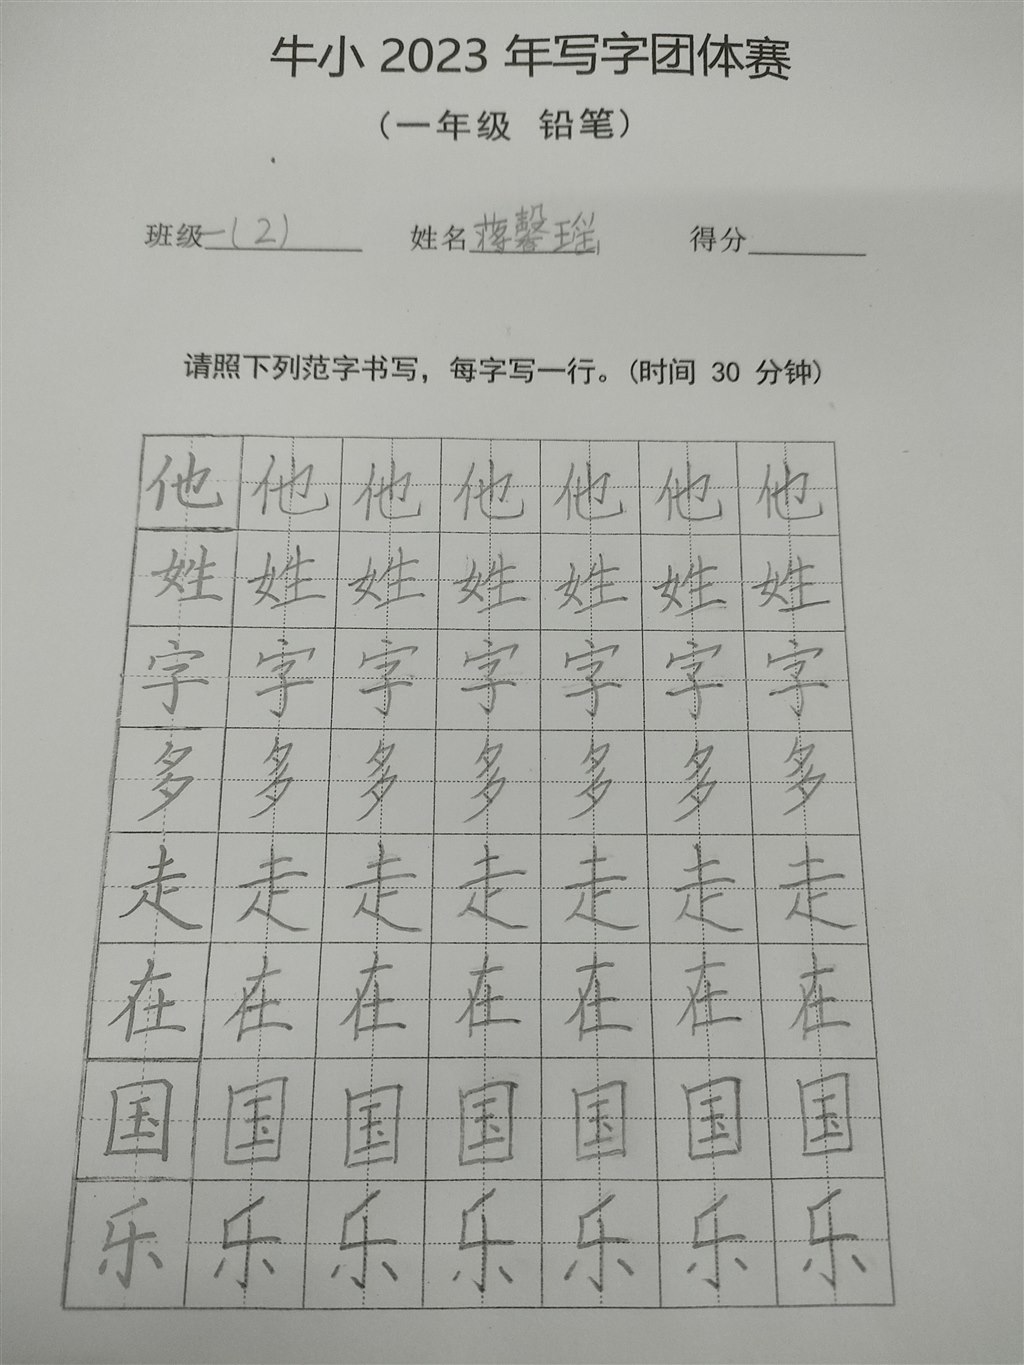 牛小 2023 年写字团体赛
（一年级 铅笔）
班级一(2) 姓名蒋馨瑶 得分
请照下列范字书写，每字写一行。(时间 30 分钟)
他他他他他他他
姓姓姓姓姓姓姓
字字字字字字字
多多多多多多多
走走走走走走走
在在在在在在在
国国国国国国国
乐乐乐乐乐乐乐